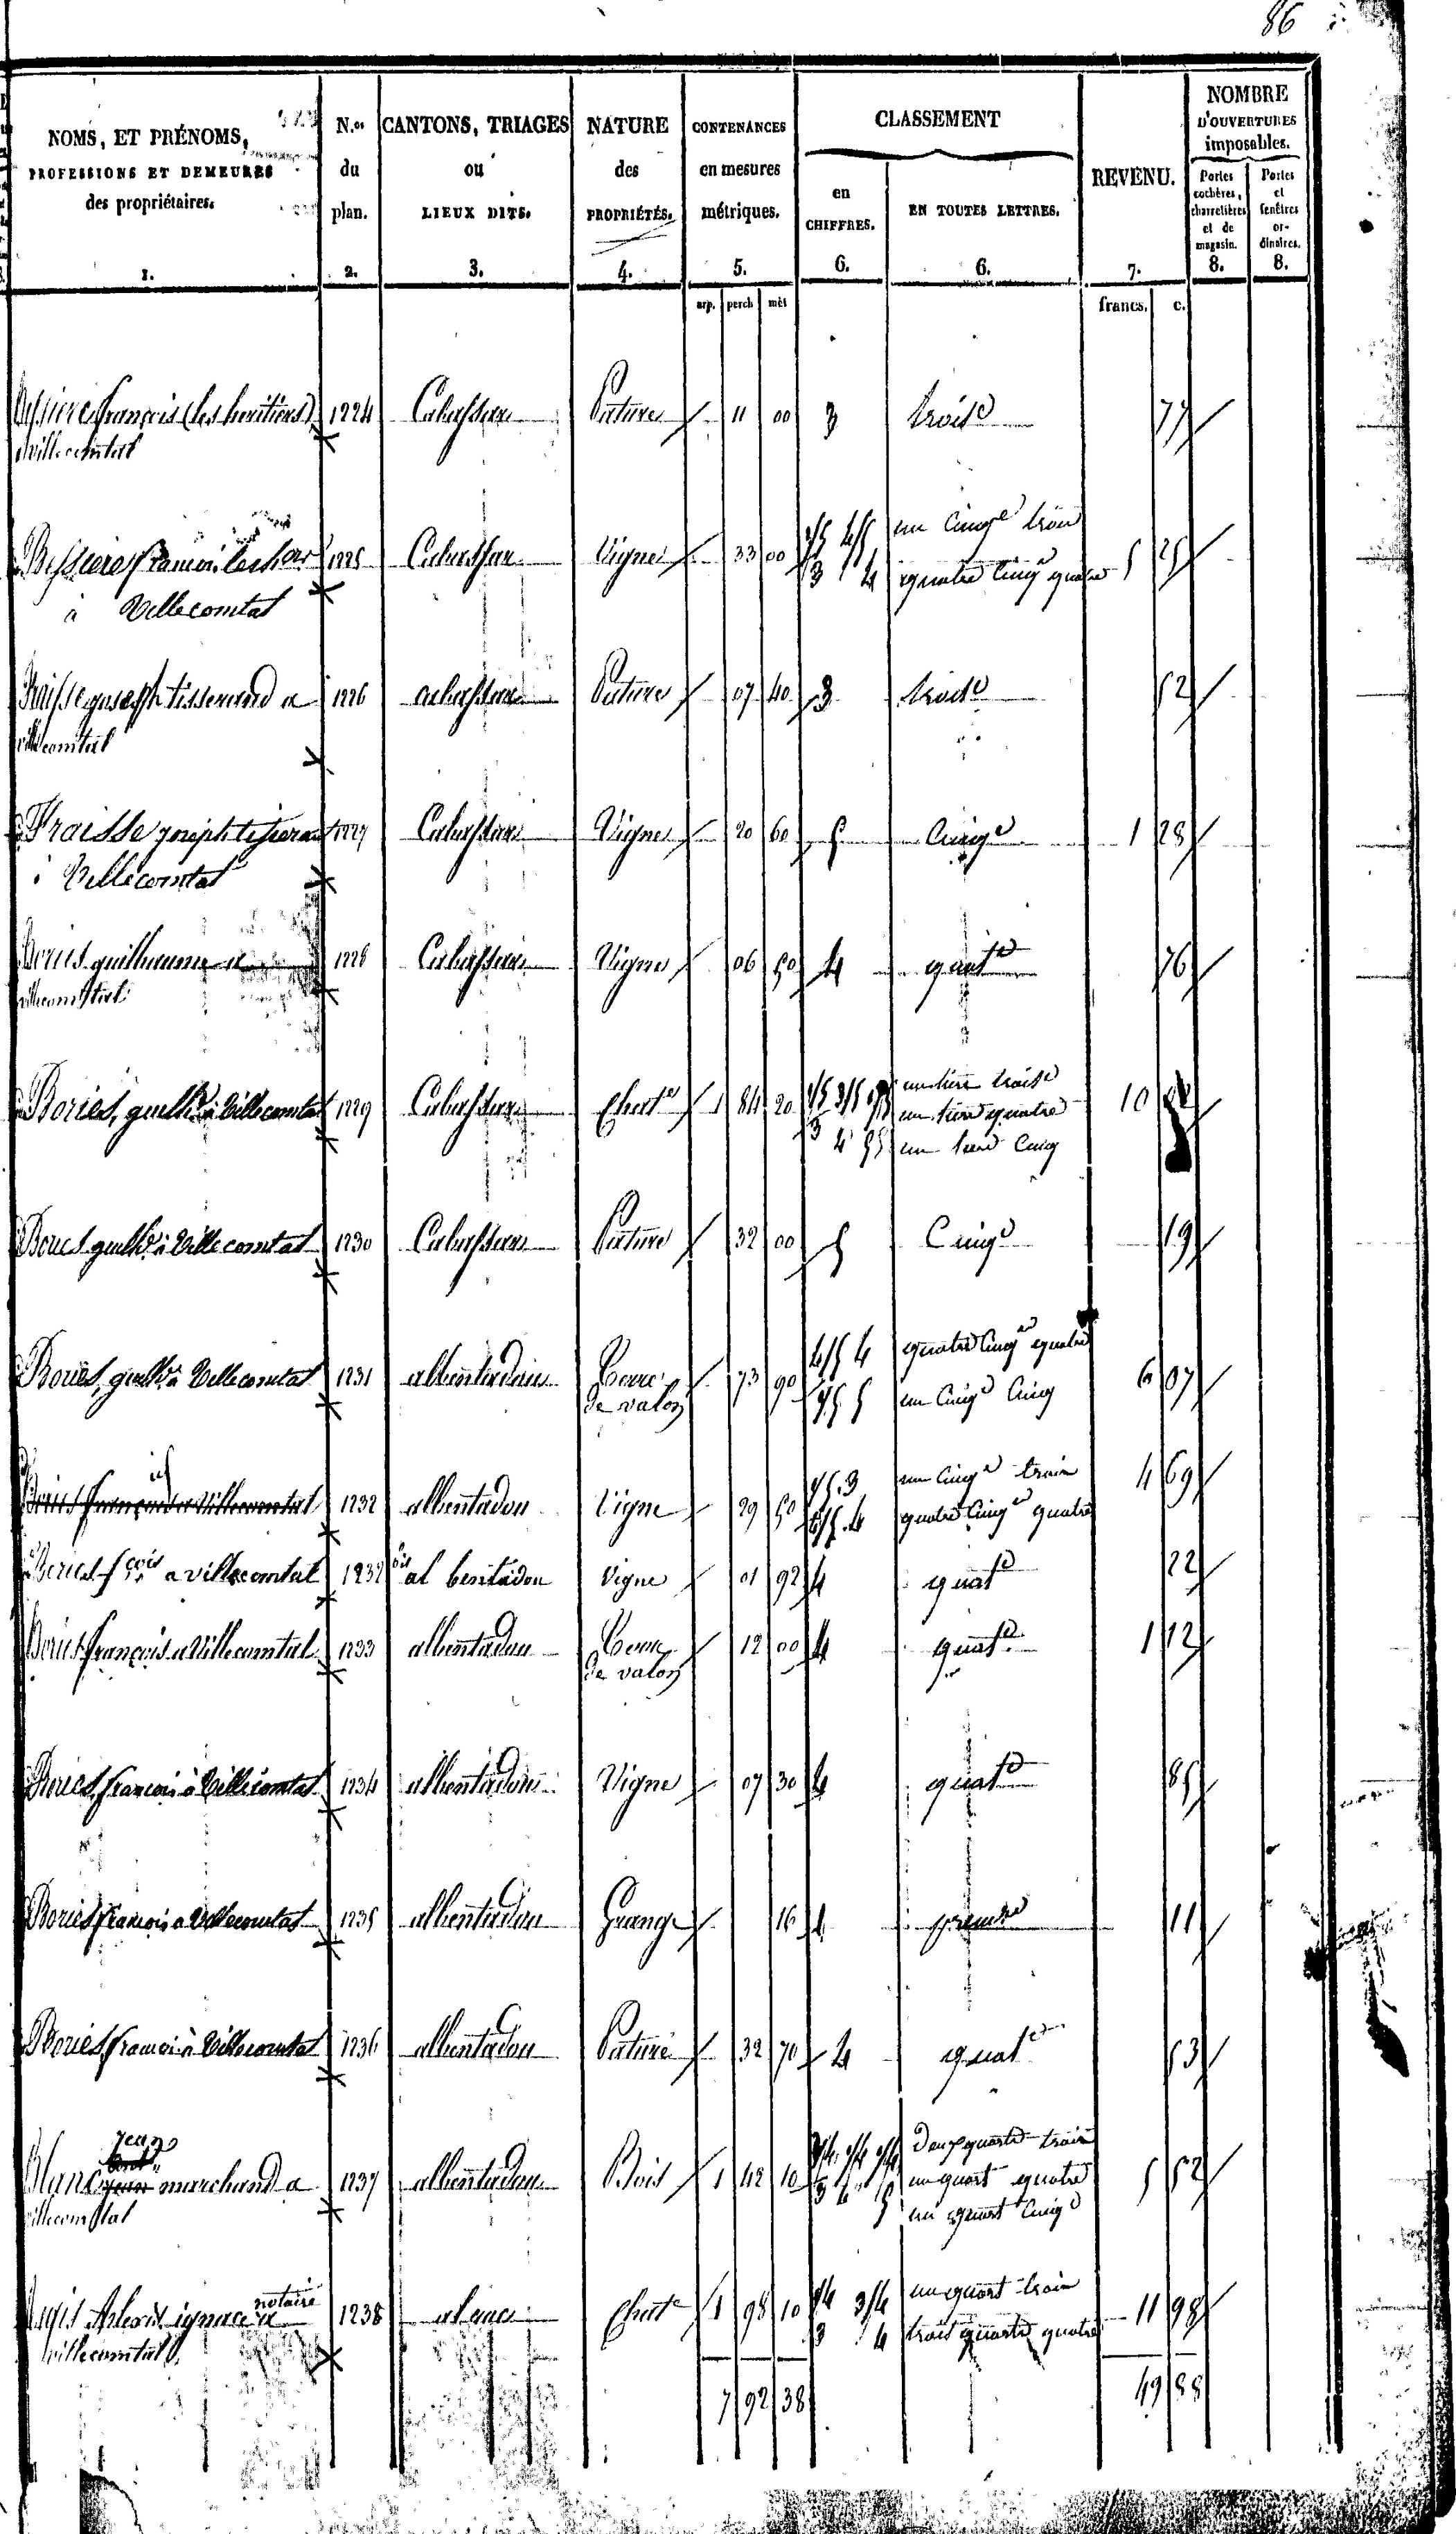 86
NOMS, ET PRÉNOMS, PROFESSIONS ET DEMEURES des propriétaires. 1.
N.os du plan. 2.
CANTONS, TRIAGES ou LIEUX DITS. 3.
NATURE des PROPRIÉTÉS. 4.
CONTENANCES en mesures métriques. 5.
CLASSEMENT
en CHIFFRES. 6.
EN TOUTES LETTRES. 6.
REVENU. 7.
NOMBRE D'OUVERTURES imposables.
Portes cochères, charretières et de magasin. 8.
Portes et fenêtres ordinaires. 8.
arp. perch mèt francs. c.
françois (les heritiers) 1224 Pature 11 00 3 trois 77
villecomtal
Bessiere francois 1225 Vigne 33 00 1/5 4/5 un Cinqe trois 5 25
à Villecomtal 3 4 quatre Cinqe quatre
Fraisse joseph tisserand a 1226 Pature 07 40 3 troise 52
villecomtal
Fraisse joseph tisserant 1227 Vigne 20 60 5 Cinqe 1 28
à Villecomtal
Bories guilhaume a 1228 Vigne 06 50 4 quate 76
villecomtal
Bories, guilhe à Villecomtal 1229 Chate 1 84 20 un tiers troise 10
3 un tiers quatre
4 un tiers Cinq
Bories guilhe à Villecomtal 1230 Pature 32 00 5 Cinqe 19
Bories, guilhe à Villecomtal 1231 albentadou Terre 73 90 4/5 4 quatre Cinqe quatre 6 07
de valon 1/5 5 un Cinqe Cinq
Bories françois a Villecomtal 1232 albentadou Vigne 29 50 1/5.3 un Cinqe trois 4 69
4/5.4 quatre Cinqe quatre
Bories fcois a villecomtal 1232 bis al bentadou Vigne 01 92 4 quate 22
Bories françois a Villecomtal 1233 albentadou Terre 12 00 4 quate 1 12
de valon
Bories, francois à Villecomtal 1234 albentadou Vigne 07 30 4 quate 85
Bories francois a Villecomtal 1235 albentadou Grange 16 1 premre 11
Bories, francois à Villecomtal 1236 albentadou Pature 32 70 4 quate 53
jean
Blanc jean marchand a 1237 albentadou Bois 1 42 10 2/4 1/4 1/4 Deux quarts trois 5 52
villecomtal 3 4 5 un quart quatre
un quart Cinqe
notaire
Alexis ignace a 1238 Chate 1 98 10 1/4 3/4 un quart trois 11 98
villecomtal 3 4 trois quarts quatre
7 92 38 49 88